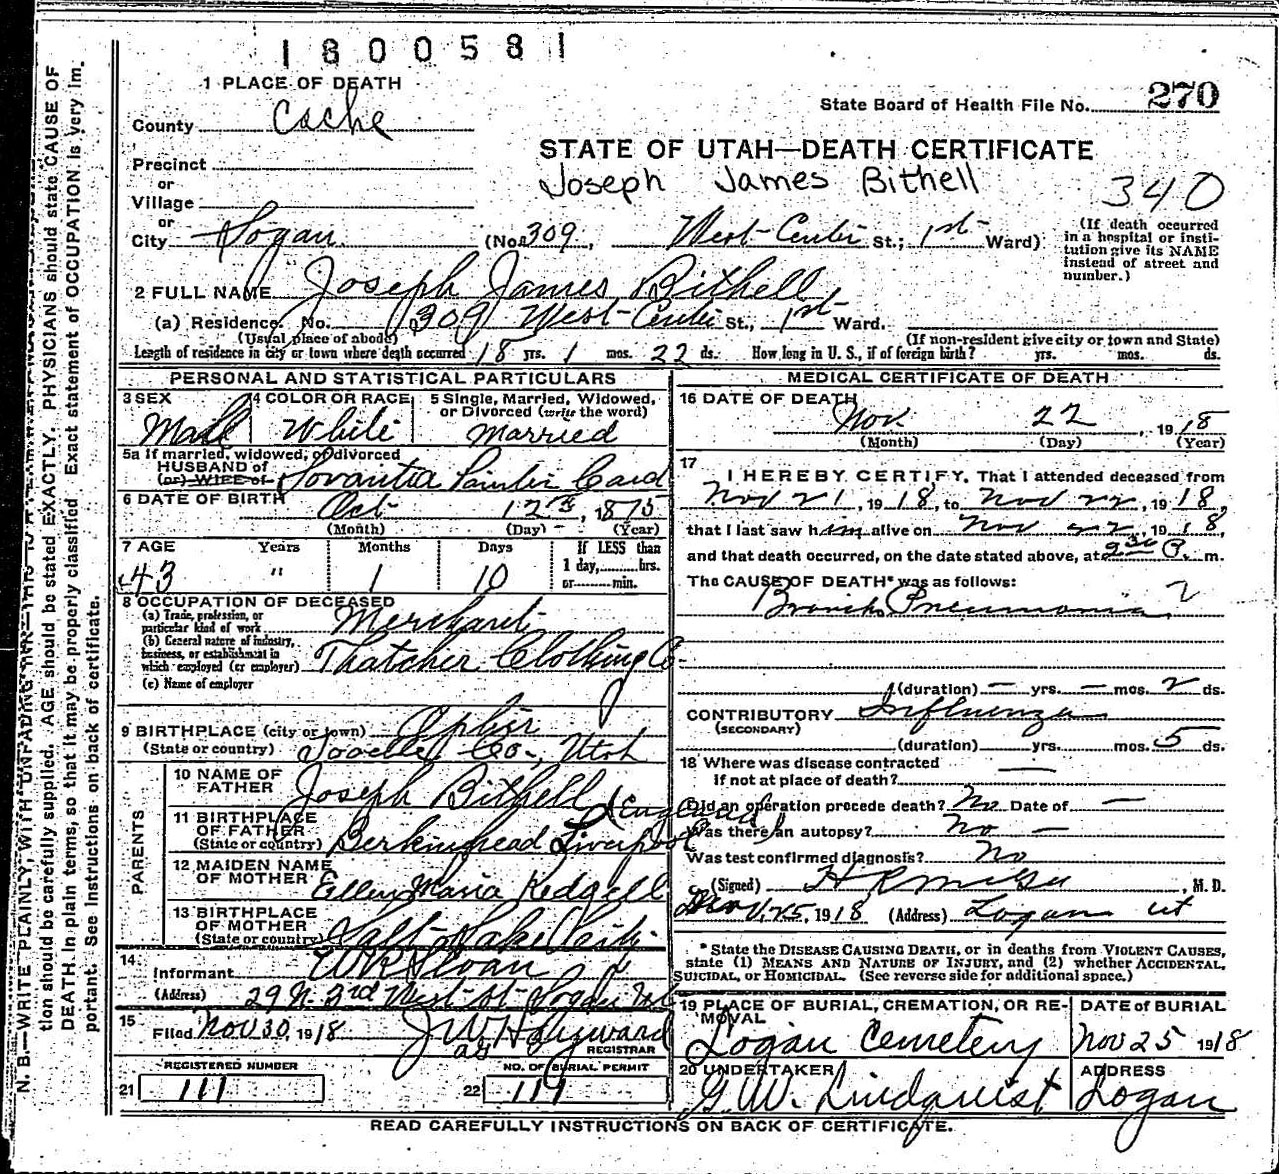 1800581
1 PLACE OF DEATH
County Cache
State Board of Health File No. 270
Precinct
or
Village
or
STATE OF UTAH—DEATH CERTIFICATE
Joseph James Bithell
340
City Logan (No. 309, West-Center St.; 1st Ward)
(If death occurred in a hospital or insti-
tution give its NAME
instead of street and
number.)
2 FULL NAME Joseph James Bithell
(a) Residence. No. 309 West-Center St., 1st Ward.
(Usual place of abode) (If non-resident give city or town and State)
Length of residence in city or town where death occurred 18 yrs. 1 mos. 22 ds. How long in U. S., if of foreign birth? yrs. mos. ds.
PERSONAL AND STATISTICAL PARTICULARS
3 SEX Male
4 COLOR OR RACE White
5 Single, Married, Widowed,
or Divorced (write the word)
Married
5a If married, widowed, or divorced
HUSBAND of
(or) WIFE of Card
6 DATE OF BIRTH Oct 12th, 1875
(Month) (Day) (Year)
7 AGE Years Months Days If LESS than
1 day, hrs.
or min.
43 " 1 10
8 OCCUPATION OF DECEASED
(a) Trade, profession, or
particular kind of work Merchant
(b) General nature of industry,
business, or establishment in
which employed (or employer) Thatcher Clothing Co-
(c) Name of employer
9 BIRTHPLACE (city or town) Ophir
(State or country) Tooele Co-, Utah
PARENTS
10 NAME OF
FATHER Joseph Bithell
11 BIRTHPLACE
OF FATHER
(State or country) Berkinhead Liverpool (England)
12 MAIDEN NAME
OF MOTHER Ellen Maria Kedgell
13 BIRTHPLACE
OF MOTHER
(State or country) Salt-Lake City-
14
Informant W R Sloan
(Address) 29 N. 3rd West-St-Logan Ut
15
Filed Nov 30, 1918 J W Hayward
REGISTRAR
REGISTERED NUMBER
21 111
NO. OF BURIAL PERMIT
22 119
MEDICAL CERTIFICATE OF DEATH
16 DATE OF DEATH
Nov. 22, 1918
(Month) (Day) (Year)
17
I HEREBY CERTIFY, That I attended deceased from
Nov 21, 1918, to Nov 22, 1918,
that I last saw him alive on Nov 22, 1918,
and that death occurred, on the date stated above, at 930 P. m.
The CAUSE OF DEATH* was as follows:
Broncho Pneumonia
(duration) — yrs. — mos. 2 ds.
CONTRIBUTORY Influenza
(SECONDARY)
(duration) yrs. mos. 5 ds.
18 Where was disease contracted
if not at place of death? —
Did an operation precede death? No Date of —
Was there an autopsy? No —
Was test confirmed diagnosis? No
(Signed) , M. D.
25, 1918 (Address) Logan Ut
* State the DISEASE CAUSING DEATH, or in deaths from VIOLENT CAUSES,
state (1) MEANS AND NATURE OF INJURY, and (2) whether ACCIDENTAL,
SUICIDAL, or HOMICIDAL. (See reverse side for additional space.)
19 PLACE OF BURIAL, CREMATION, OR RE-
MOVAL
Logan Cemetery
DATE of BURIAL
Nov 25 1918
20 UNDERTAKER
G. W. Lindquist
ADDRESS
Logan
READ CAREFULLY INSTRUCTIONS ON BACK OF CERTIFICATE.
N. B.—WRITE PLAINLY, WITH UNFADING INK—THIS IS A
tion should be carefully supplied. AGE should be stated EXACTLY. PHYSICIANS should state CAUSE OF
DEATH in plain terms, so that it may be properly classified. Exact statement of OCCUPATION is very im-
portant. See instructions on back of certificate.